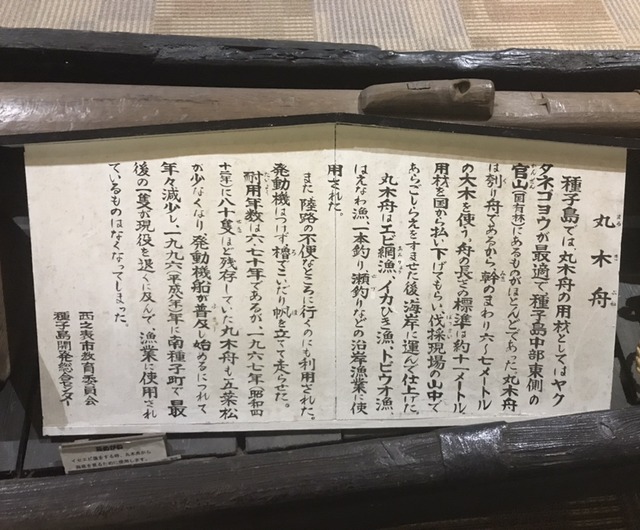 丸木舟
種子島では、丸木舟の用材としてはヤク
タネゴヨウが最適で種子島中部東側の
官山(国有林)にあるものがほとんどであった。丸木舟
は刳り舟であるから幹のまわり六〜七メートル
の大木を使う。舟の長さの標準は約十一メートル
用材を国から払い下げてもらい伐採現場の山中で
あらごしらえをすませた後、海岸に運んで仕上げた。
丸木舟はエビ網漁、イカひき漁、トビウオ漁、
はえなわ漁、一本釣り瀬釣りなどの沿岸漁業に使
用された。
また陸路の不便なところに行くのにも利用された。
発動機はつけず櫓でこいだり帆を立てて走らせた。
耐用年数は六、七十年であるが、一九六七年(昭和四
十二年)に八十隻ほど残存していた丸木舟も五葉松
が少なくなり発動機船が普及し始めるにつれて
年々減少し、一九九六(平成八)年に南種子町で、最
後の一隻が現役を退くに及んで、漁業に使用され
ているものはなくなってしまった。
西之表市教育委員会
種子島開発総合センター